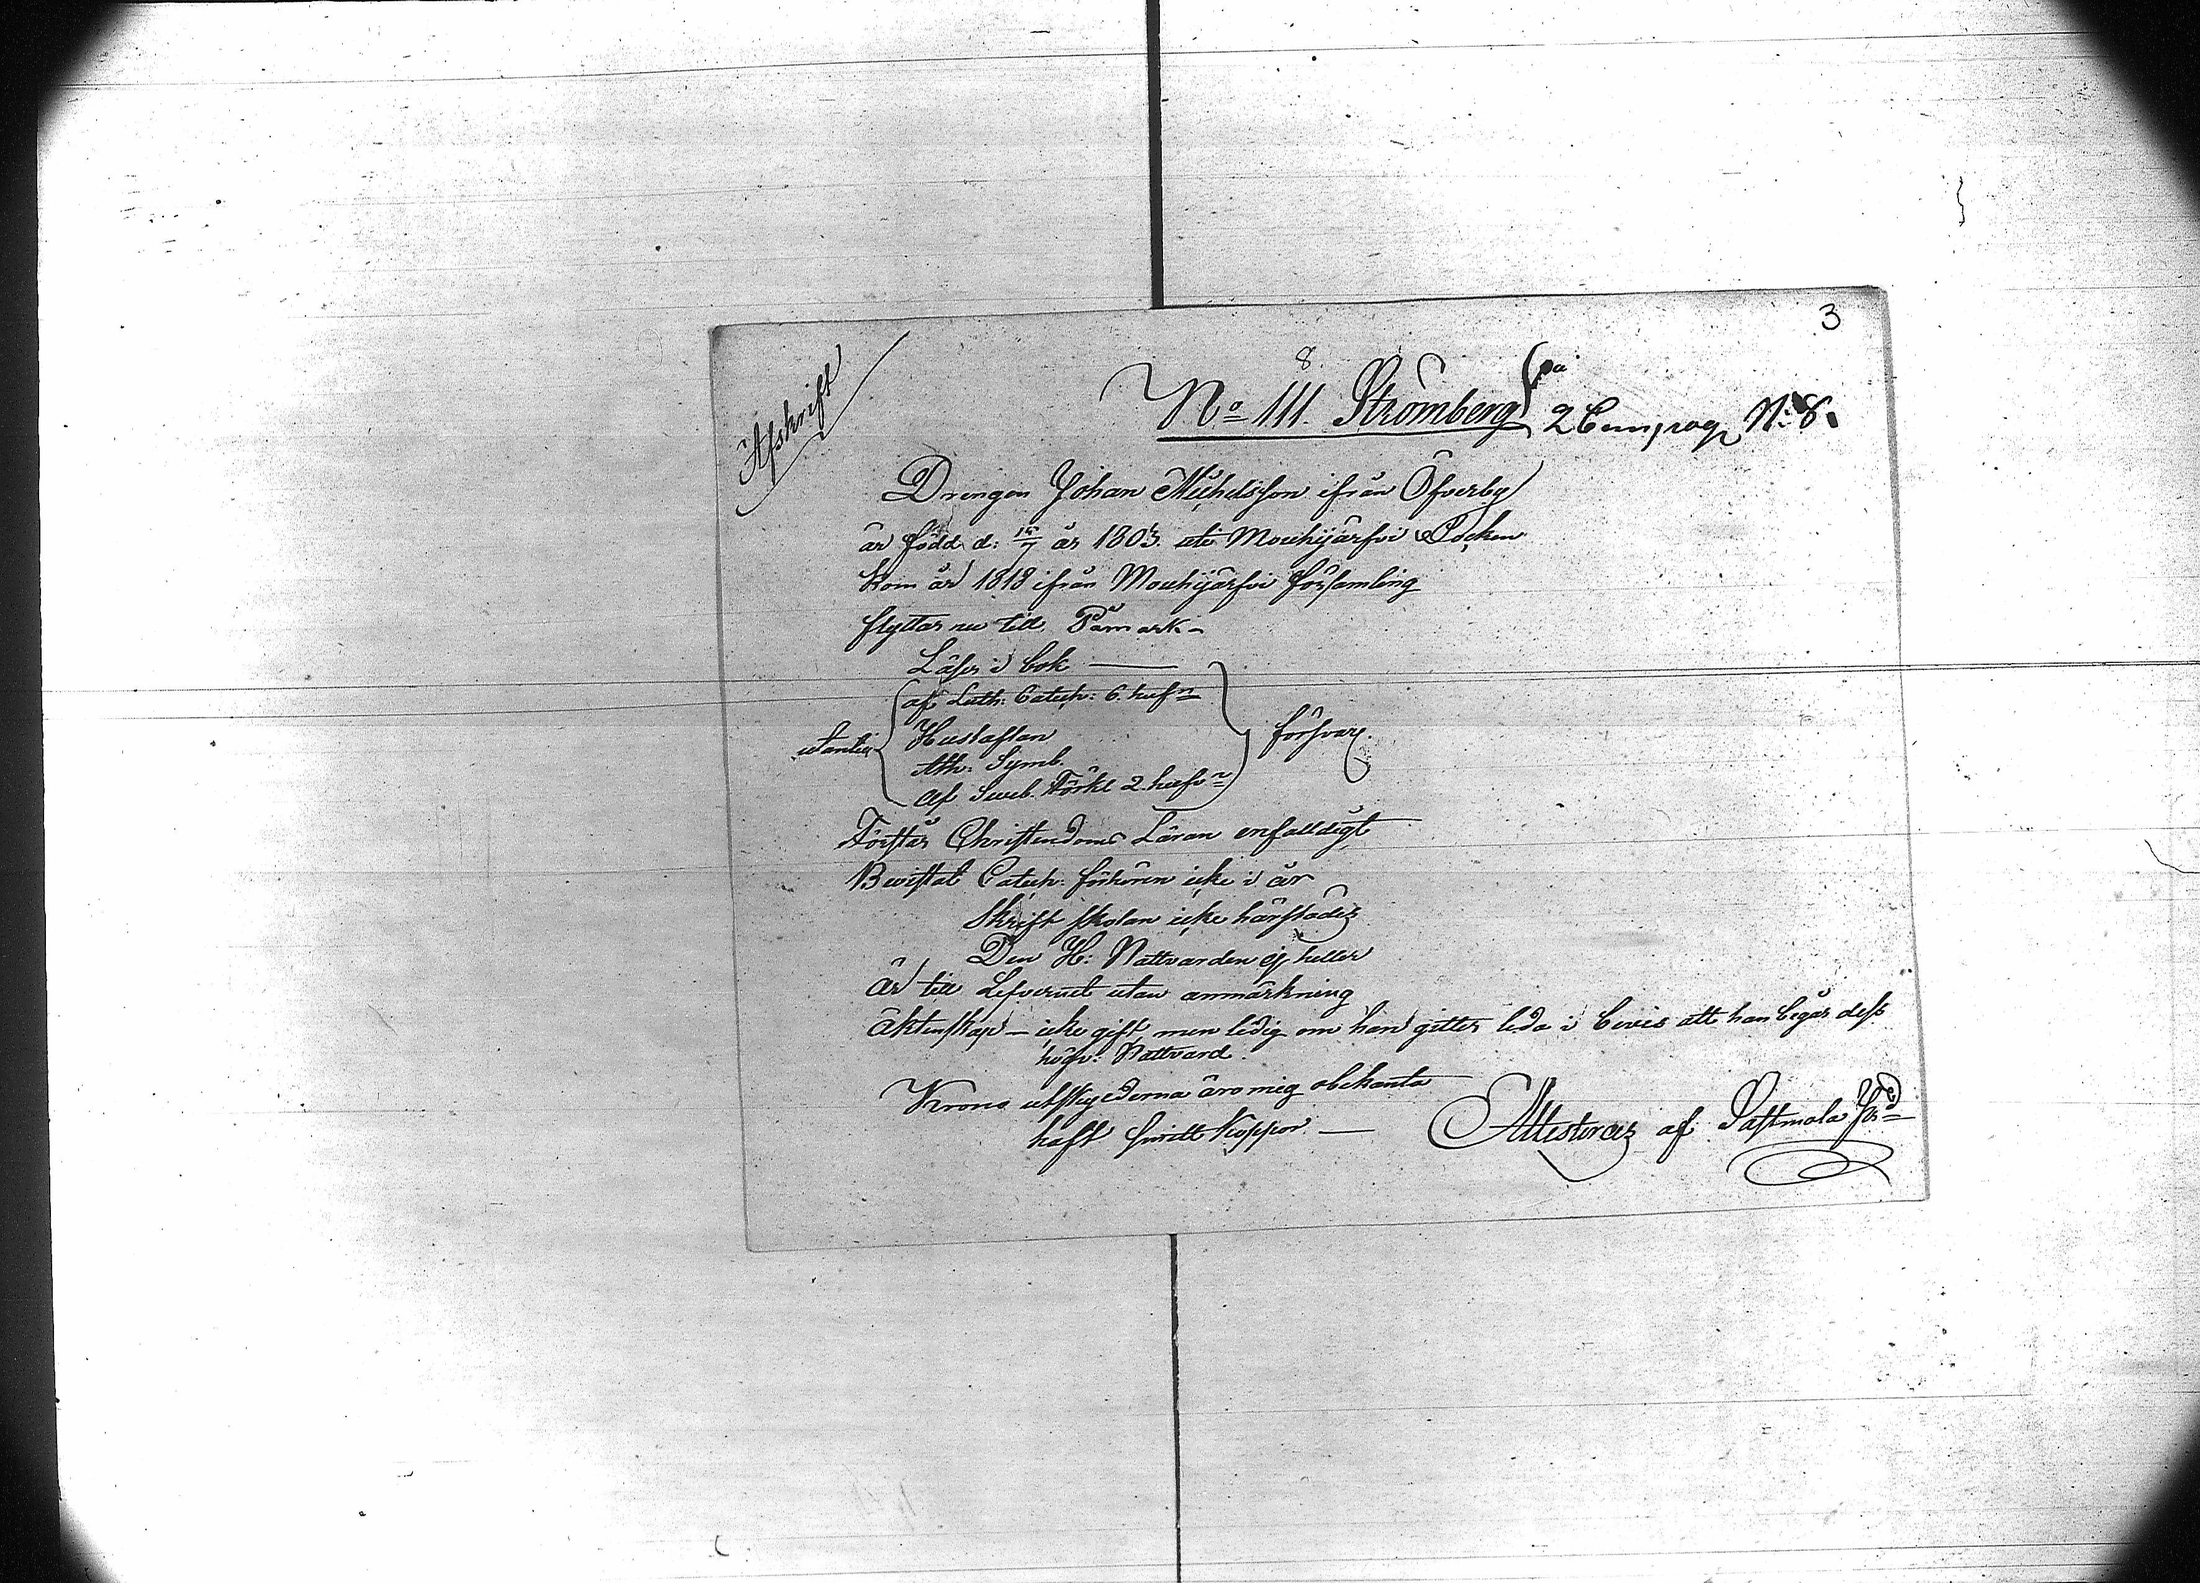 3
Afskrift
8.
No 111. Strömberg på
2 Compag N: 8.
Drengen Johan Michelsson ifrån Öfverby
är född d: 15/7 år 1803. uti Mouhijärfvi Socken
kom år 1818 ifrån Mouhijärfvi församling
flyttar nu till Påmark –
Läser i bok —
af Luth: Catech: 6. hufn
utantill Hustaflan försvarl.
Ath: Symb.
af Sveb. Förkl 2. hufvn
Förstår Christendoms Läran enfalldigt
Bevistat Catech: förhören icke i år
Skrift skolan icke härstädes
Den H: Nattvarden ej heller
är till Lefvernet utan anmärkning
äktenskap – icke gift, men ledig om han gitter leda i bevis att han begår dess
högv: Nattvard.
Krono utskylderna äro mig obekanta
haft smitt Koppor —
Attesteras af Sastmola